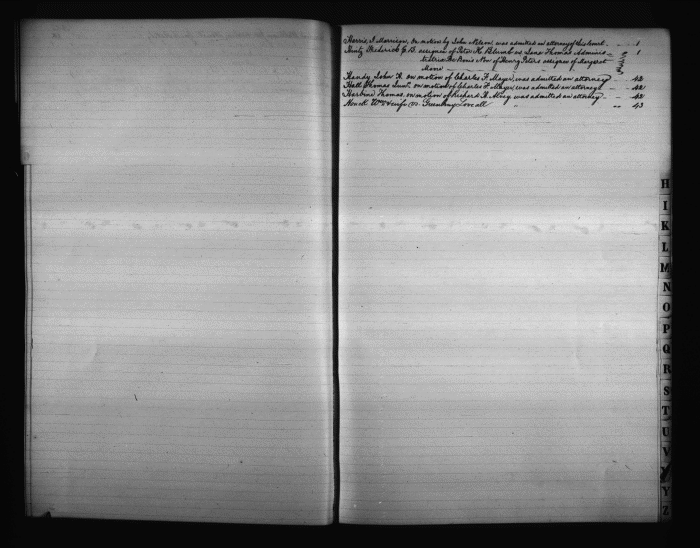 Harris, J. Morrison, On motion by John Nelson, was admitted an attorney of this Court. 1
Hintz Frederick G. B. assignee of Peter H. Blumb vs Jane Thomas Adminis 1
de Bonis Non of Henry Peters assignee of Margaret
Moore
Handy John H. on motion of Charles F. Mayer, was admitted an attorney 42
Hall Thomas on motion of Charles F. Mayer, was admitted an attorney 42
Harbine Thomas, on motion of Richard H. Alvey was admitted an attorney 42
Houck Wm & wife vs Greenbury Loveall " 43
H
I
K
L
M
N
O
P
Q
R
S
T
U
V
Y
Z